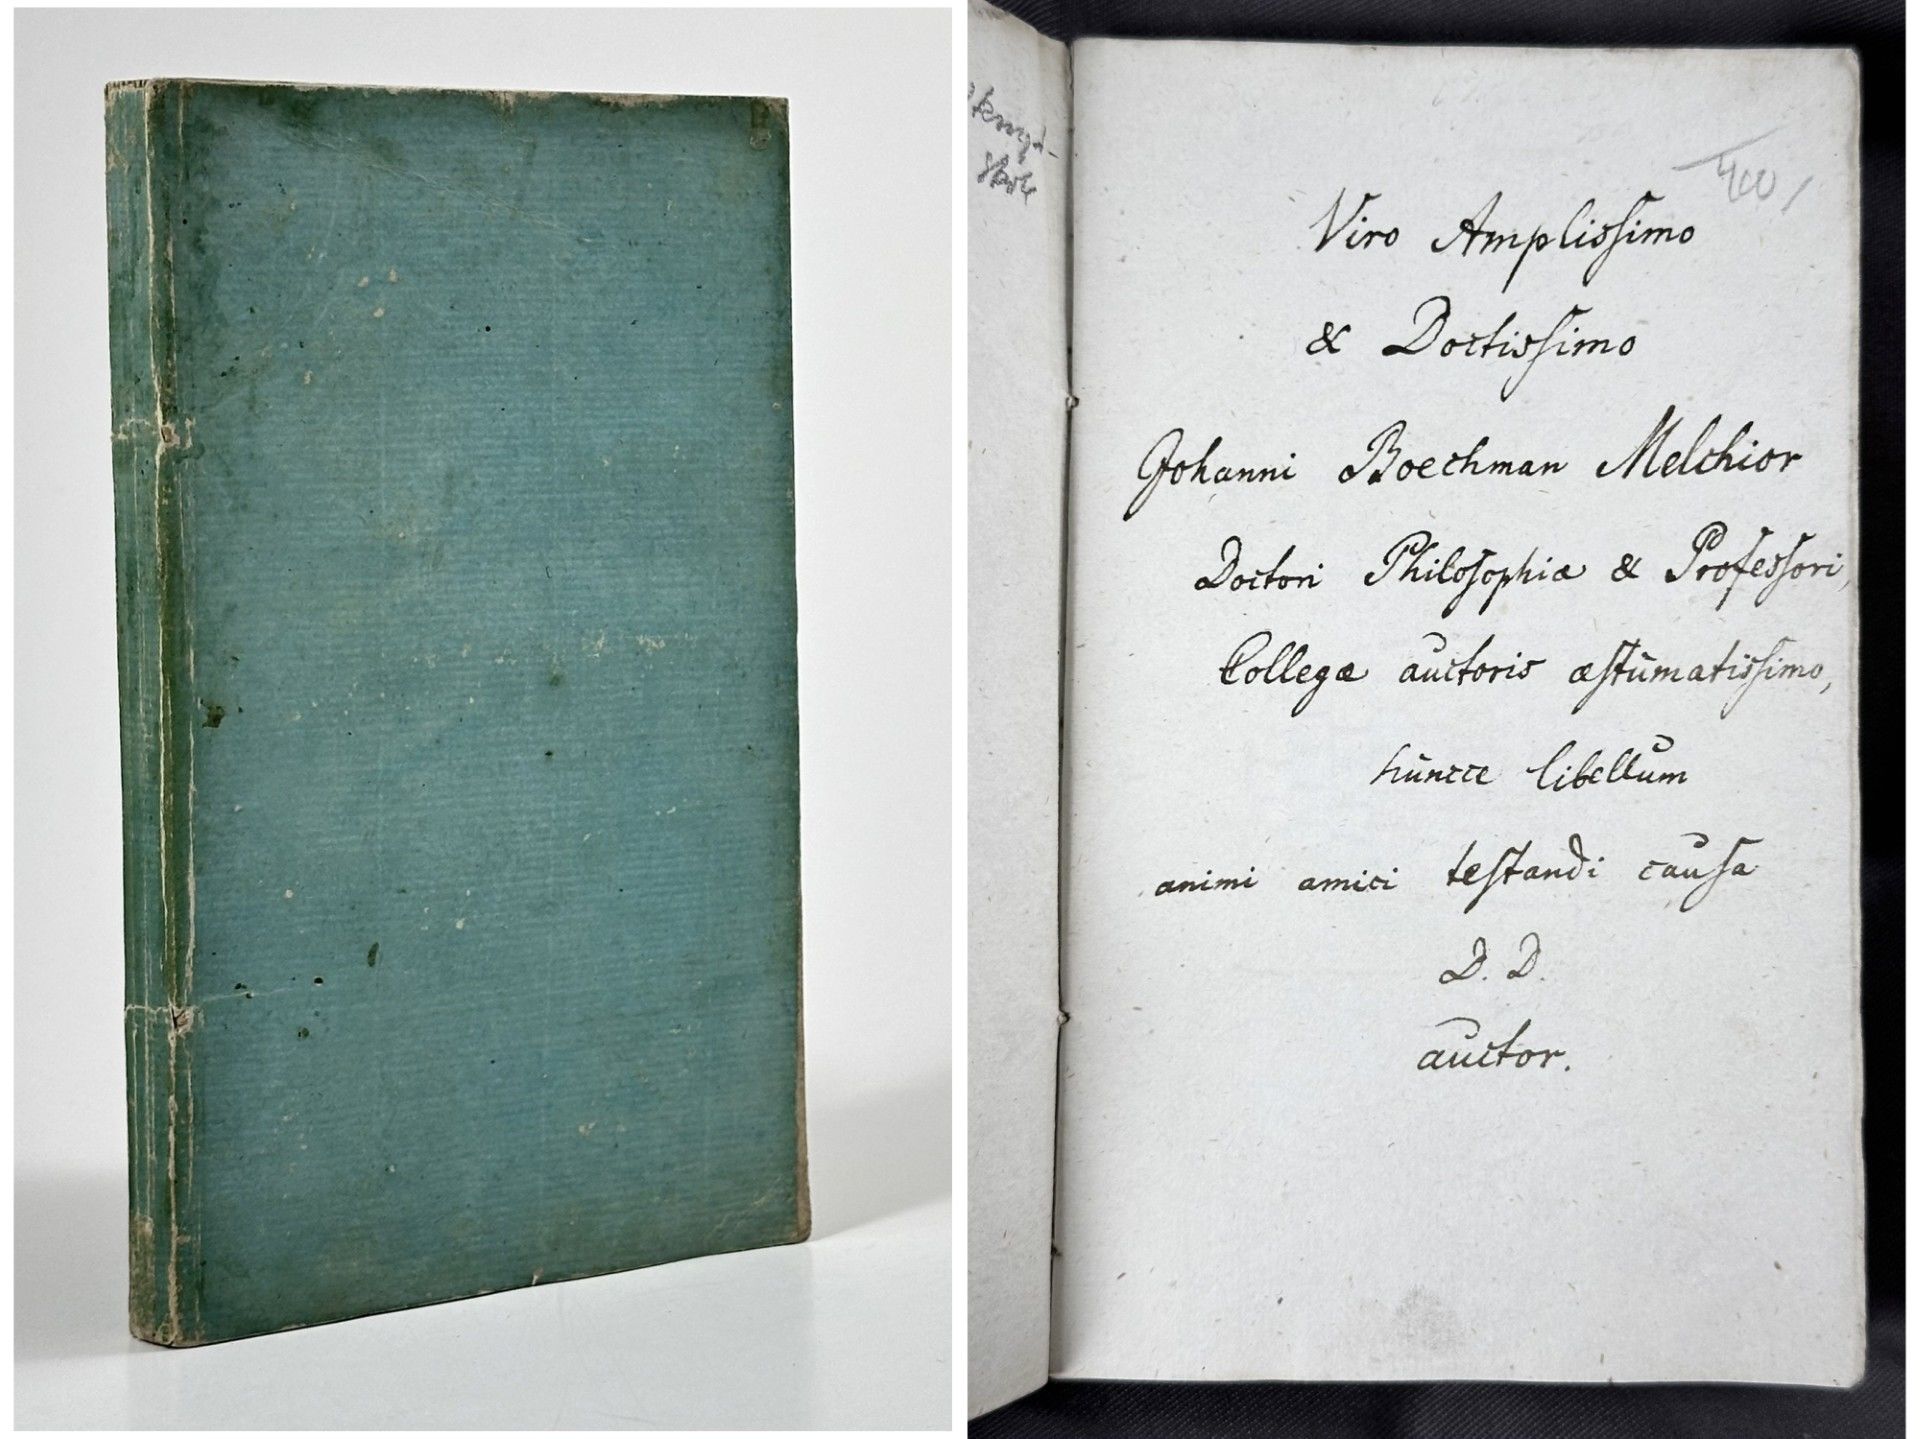 400
Viro Amplissimo
& Doctissimo
Johanni Boechman Melchior
Doctori Philosophiæ & Professori,
Collegæ auctoris æstumatissimo,
huncce libellum
animi amici testandi causa
D. D.
auctor.